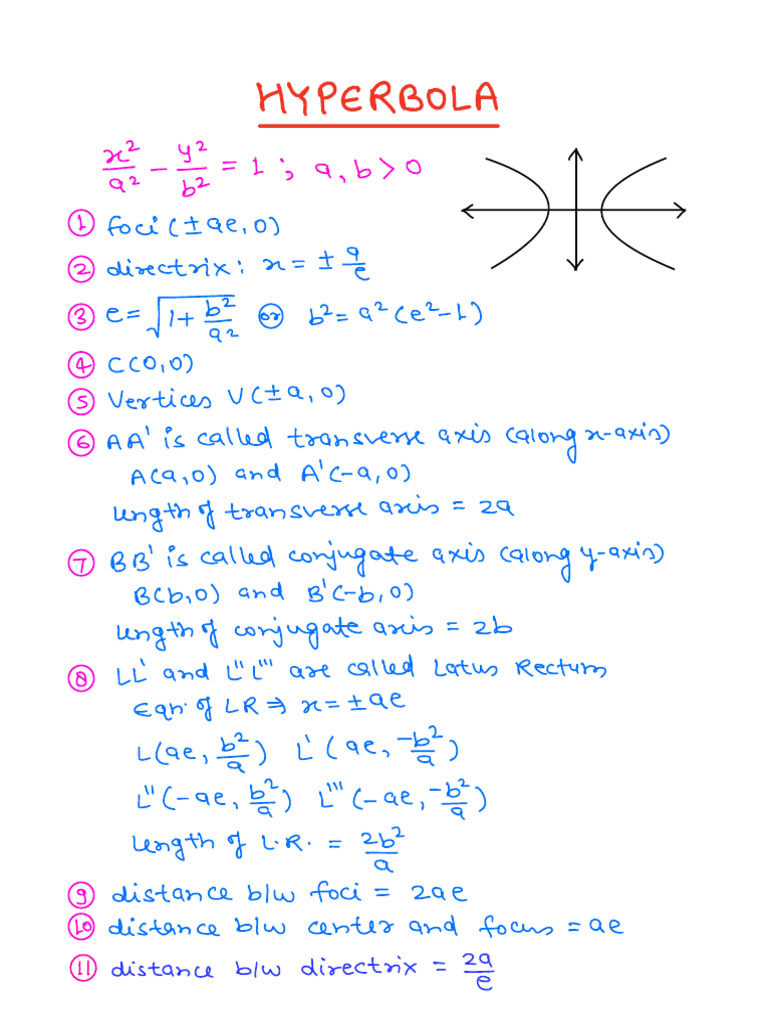 HYPERBOLA
x²/a² - y²/b² = 1 ; a, b > 0
① foci (±ae, 0)
② directrix: x = ± a/e
③ e = √(1 + b²/a²) or b² = a²(e² - 1)
④ C(0,0)
⑤ Vertices V(±a, 0)
⑥ AA' is called transverse axis (along x-axis)
A(a,0) and A'(-a,0)
length of transverse axis = 2a
⑦ BB' is called conjugate axis (along y-axis)
B(b,0) and B'(-b,0)
length of conjugate axis = 2b
⑧ LL' and L''L''' are called Latus Rectum
Eqn. of LR ⇒ x = ±ae
L(ae, b²/a) L'(ae, -b²/a)
L''(-ae, b²/a) L'''(-ae, -b²/a)
length of L.R. = 2b²/a
⑨ distance b/w foci = 2ae
⑩ distance b/w center and focus = ae
⑪ distance b/w directrix = 2a/e